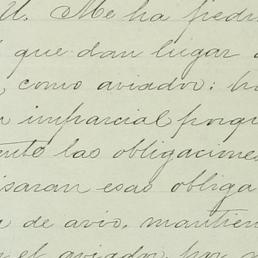 U. Me ha pedi
que dan lugar
, como aviador; h
imparcial porqu
ento las obligaciones
isaran esas obliga
a de avio, mantien
el aviador por